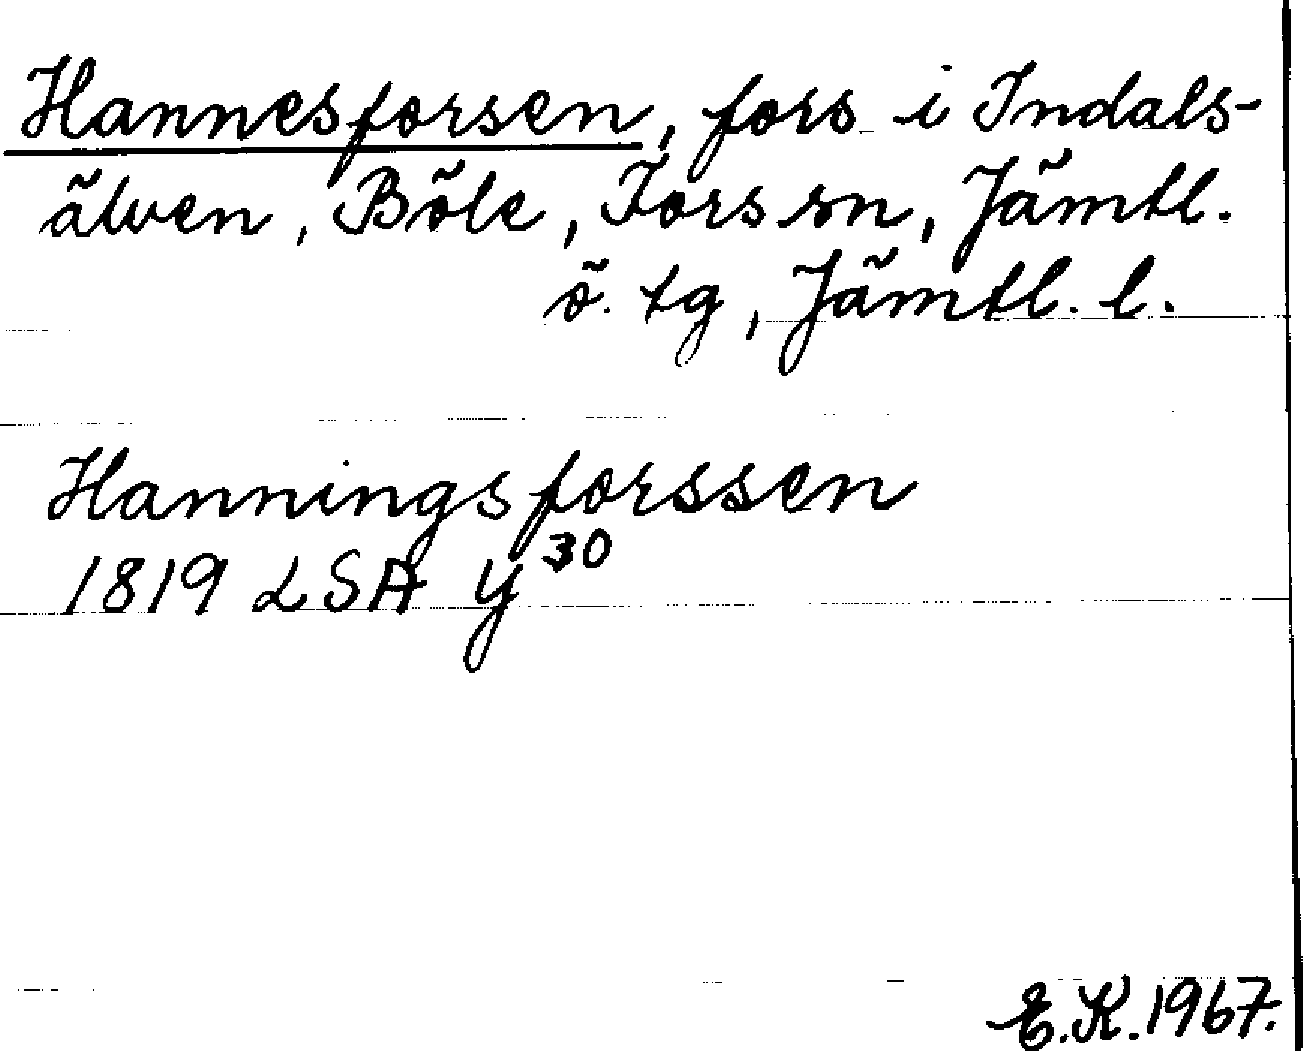 Hannesforsen, fors i Indals-
älven, Böle, Fors sn, Jämtl.
ö. tg, Jämtl. l.
Hanningsforssen
1819 LSA Y 30
E.K. 1967.